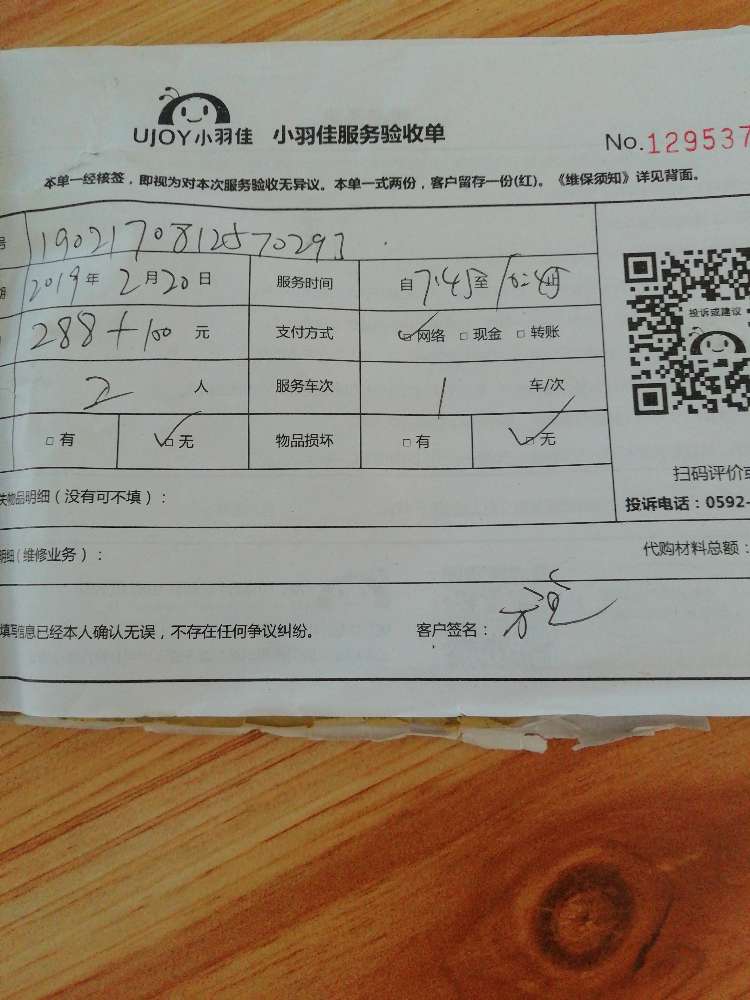 UJOY小羽佳 小羽佳服务验收单
No.129537
本单一经核签，即视为对本次服务验收无异议。本单一式两份，客户留存一份(红)。《维保须知》详见背面。
号 1190217081257029
期 2019年2月20日 服务时间 自7:45至
288+100 元 支付方式 网络 现金 转账
投诉或建议
2 人 服务车次 1 车/次
有 无 物品损坏 有 无
扫码评价或
失物品明细（没有可不填）：
投诉电话：0592-
明细（维修业务）：
代购材料总额：
填写信息已经本人确认无误，不存在任何争议纠纷。 客户签名：